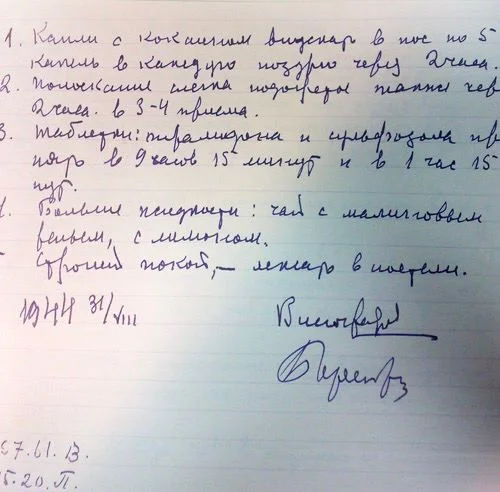 1. Капли с кокаином впускать в нос по 5
капель в каждую ноздрю через 2 часа.
2. Полоскание слегка подогретое также чер
2 часа. в 3-4 приема.
3. Таблетки: пирамидона и сульфозола при
нять в 9 часов 15 минут и в 1 час 15
нут.
4. Больше жидкости: чай с малиновым
реньем, с лимоном.
Строгий покой, – лежать в постели.
1944 31/VIII
Виноградов
37.61. В.
15.20. П.